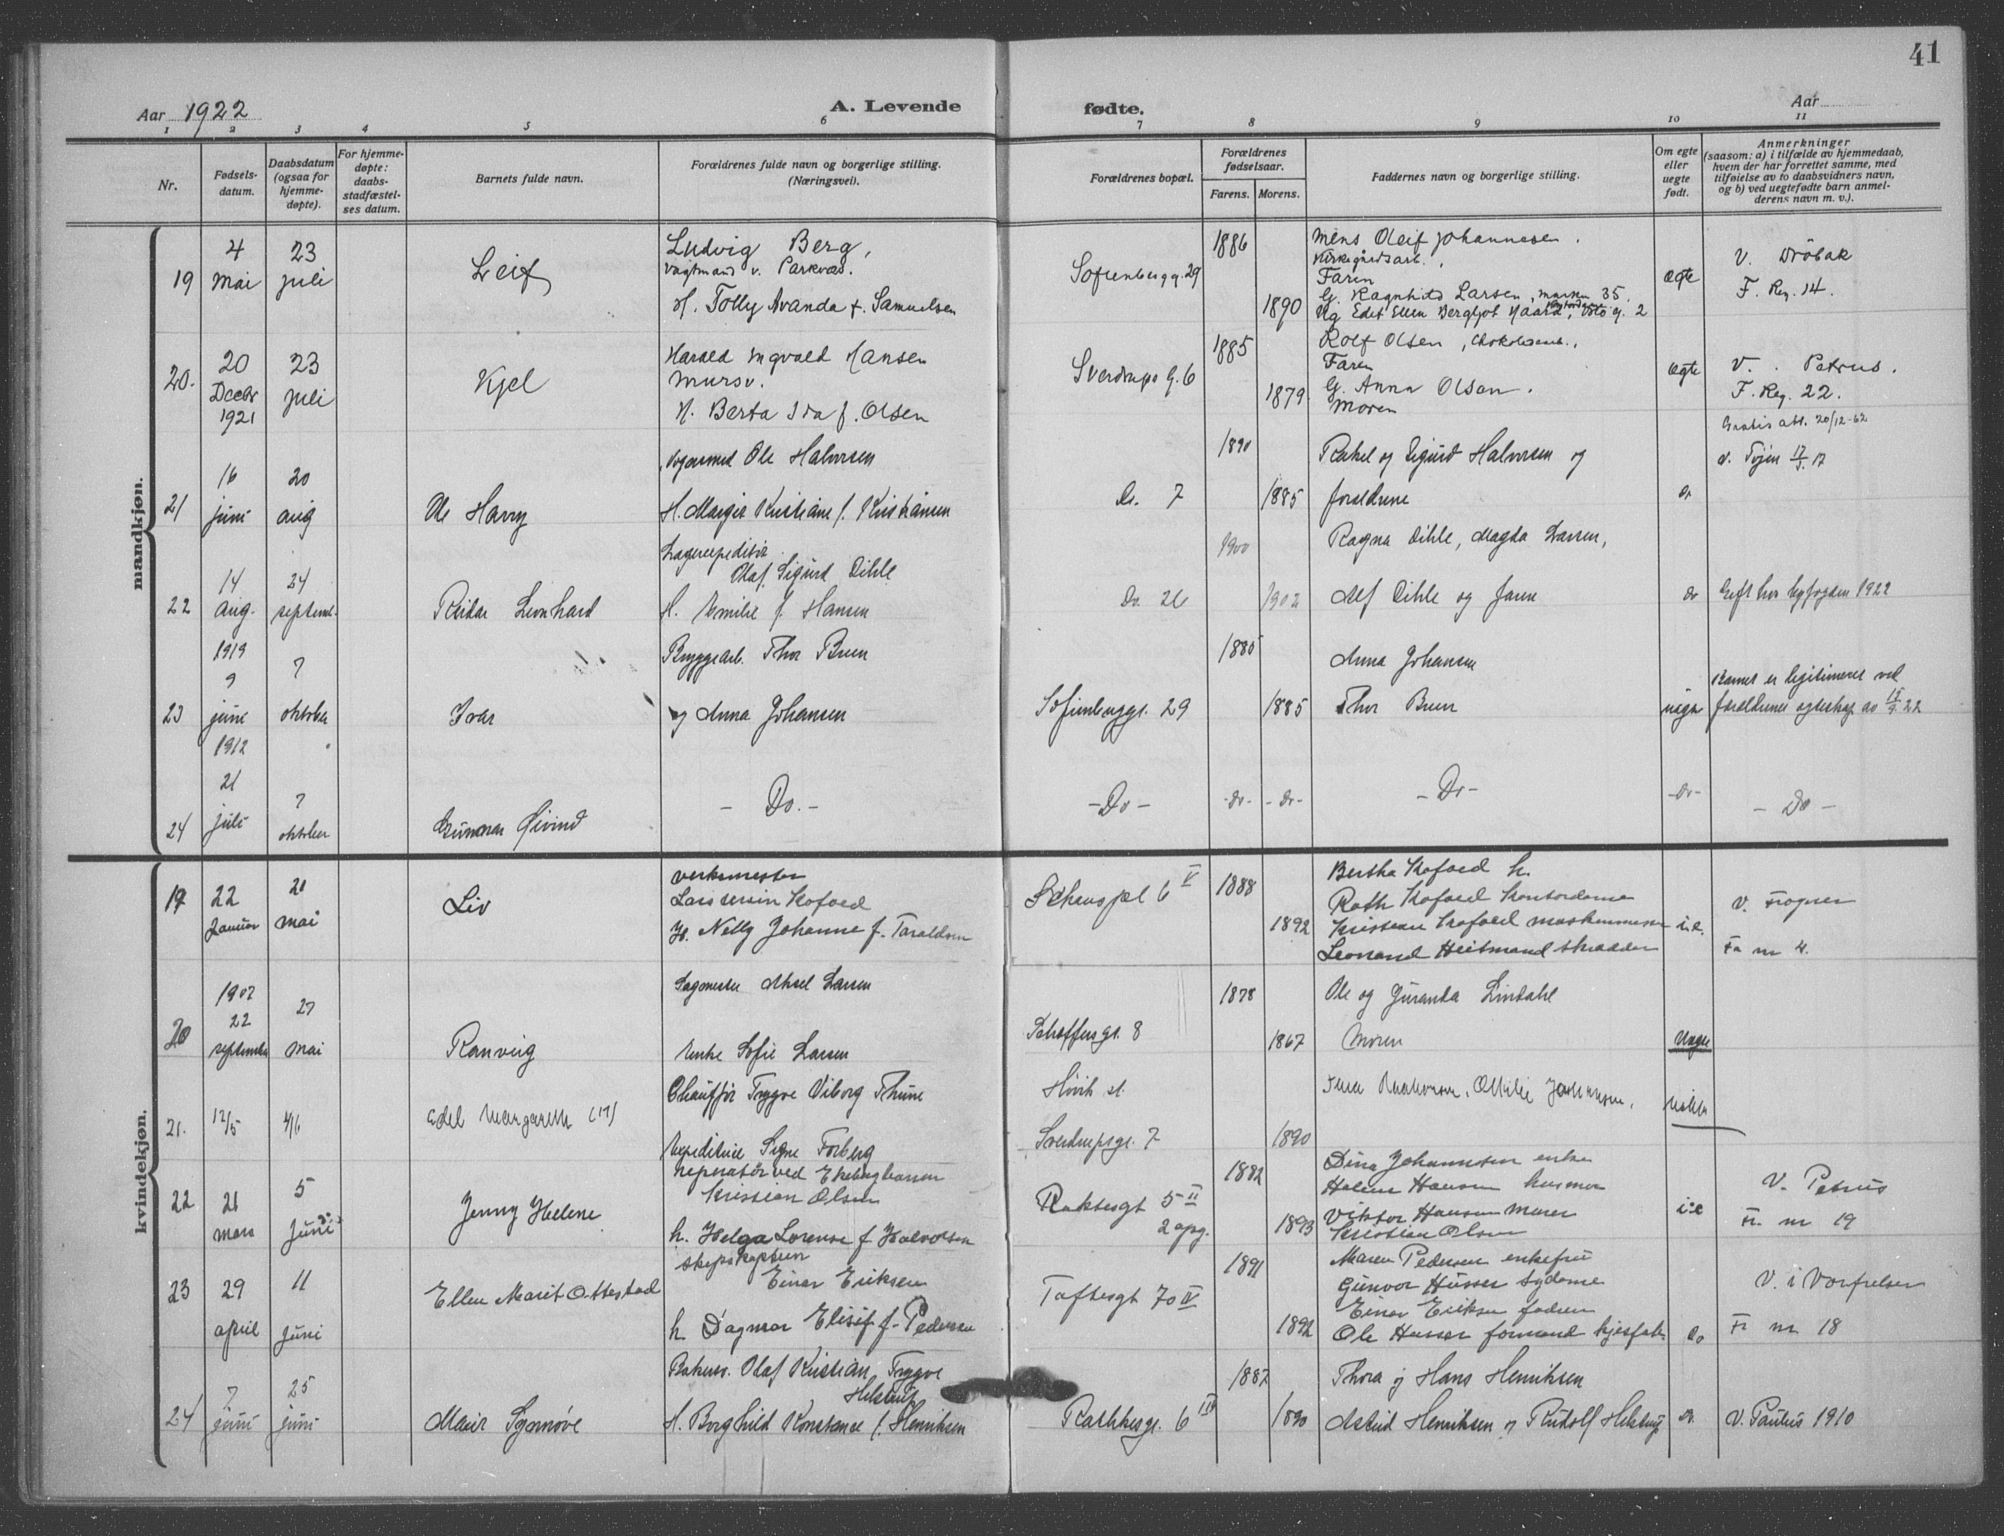 41
Aar 1922
A. Levende fødte.
Aar
1 2 3 4 5 6 7 8 9 10 11
Nr.
Fødsels-
datum.
Daabsdatum
(ogsaa for
hjemme-
døpte).
For hjemme-
døpte:
daabs-
stadfæstel-
ses datum.
Barnets fulde navn.
Forældrenes fulde navn og borgerlige stilling.
(Næringsvei).
Forældrenes bopæl.
Forældrenes
fødselsaar.
Farens. Morens.
Faddernes navn og borgerlige stilling.
Om egte
eller
uegte
født.
Anmerkninger
(saasom: a) i tilfælde av hjemmedaab,
hvem der har forrettet samme, med
tilføielse av to daabsvidners navn,
og b) ved uegtefødte barn anmel-
derens navn m. v.).
mandkjøn.
19
4
mai
23
juli
Leif
Ludvig Berg,
Vagtmand v. Parkvæs.
H. Tolly Avanda f. Samuelsen
Sofienbergg. 29
1886
1890
Mens Oleif Johannesen.
Kirkegårdsarb.,
Faren
G. Ragnhild Larsen, 35.
Edet Ellen Bergljot 2
ægte
V. Drøbak
F. Reg. 14.
20.
20
Decbr
1921
23
juli
Kjel
Harald Ingvald Hansen
mursv.
H. Berta Ida f. Olsen
Sverdrups G. 6
1885
1879
Rolf Olsen,
Faren
G. Anna Olsen.
Moren
ægte
V. Petrus.
F. Reg. 22.
Gratis att. 20/12-62
21
16
juni
20
aug
Ole Harry
Ole Halvorsen
H. Margit Kristiane f. Kristiansen
Do. 7
1890
1885
Rakel og Sigurd Halvorsen og
foreldrene
Do
v. Tøjen 17
22
14
aug.
24
septemb.
Reidar Leonhard
Lagerexpeditør
Olaf Sigurd Dihle
H. Emilie f. Hansen
Do. 26
1900
1902
Ragna Dihle, Magda Larsen,
Alf Dihle og faren
Do
Gift hos byfogden 1922
23
1919
9
juni
7
oktober
Ivar
Bryggearb. Thor Bruun
og Anna Johansen
Sofienberggt. 29
1885
1885
Anna Johansen
Thor Bruun
uegte
Barnet er legitimeret ved
foreldrenes egteskap av 15/9 22
24
1912
21
juli
7
oktober
Gunnar Øivind
- Do. -
- Do -
- Do -
- Do -
- Do -
- Do -
- Do -
kvindekjøn.
19
22
Januar
21
mai
Liv
verksmester
Lars Kofoed
H. Nelly Johanne f. Taraldsen
Schouspl 6 V
1888
1892
Bertha Kofoed h.
Ruth Kofoed Kontordame
Kristian Kofoed maskinmester
Leonard Heitmand skrædder
i.e.
V. Frogner
Fa nr 4.
20
1907
22
september
27
mai
Ranveig
Sagmester Aksel Larsen
Enke Sofie Larsen
Schæffersgt. 8
1878
1867
Ole og Guranda Lindahl
Moren
Uegte
21.
12/5
4/6
Edel Margarethe (17)
Chauffør Trygve Viborg Thune
Expeditrice Signe Forberg
Høvik st.
Sverdrupsgt. 7
1890
Ottilie Johannesen.
22
21
mars
5
Juni
Jenny Helene
reperatør ved Ekebergbanen
Kristian Olsen
h. Helga Lorense f Halvorsen
Rathkesgt 5 II
2 opg.
1882
1893
Dina Johannesen enke
Helene Hansen husmor
Viktor Hansen murer
Kristian Olsen
i.e
V. Petrus
Fr. nr 19
23
29
april
11
Juni
Ellen Marit Ottestad
skipskaptein
Einar Eriksen
h Dagmar Elisif f. Pedersen
Toftesgt 70 IV
1891
1892
Maren Pedersen enkefru
Gunvor Husser sydame
Einar Eriksen faderen
Ole Husser formand kjeksfabr
Do
V. i Vorfrelser
Fr nr 18
24
7
juni
25
juni
Mair Synnøve
Bakersv. Olaf Kristian Trygve
Helstrup
H. Borghild Konstance f. Henriksen
Rathkesgt. 6 III
1887
1890
Thora og Hans Henriksen
Astrid Henriksen og Rudolf Helstrup
Do.
V. Paulus 1910